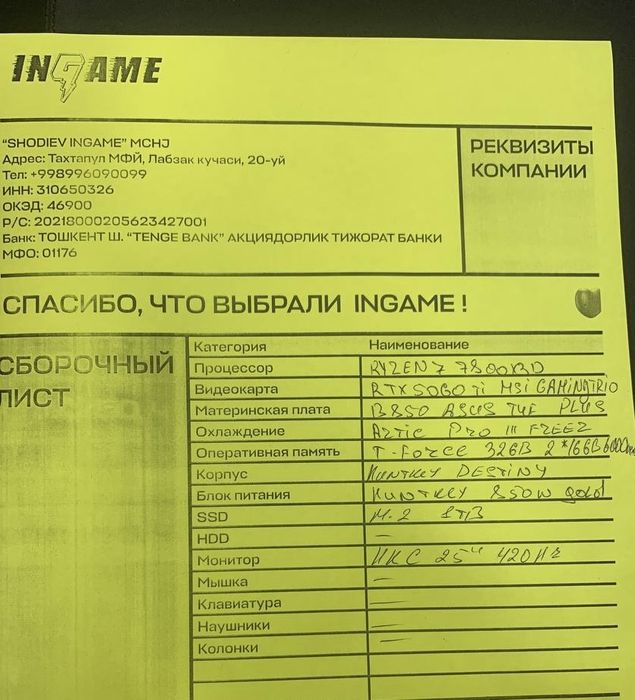 INGAME
"SHODIEV INGAME" MCHJ
Адрес: Тахтапул МФЙ, Лабзак кучаси, 20-уй
Тел: +998996090099
ИНН: 310650326
ОКЭД: 46900
Р/С: 20218000205623427001
Банк: ТОШКЕНТ Ш. "TENGE BANK" АКЦИЯДОРЛИК ТИЖОРАТ БАНКИ
МФО: 01176
РЕКВИЗИТЫ
КОМПАНИИ
СПАСИБО, ЧТО ВЫБРАЛИ INGAME !
СБОРОЧНЫЙ
ЛИСТ
Категория Наименование
Процессор RYZEN 7 7800X3D
Видеокарта RTX 5060 Ti MSI GAMING TRIO
Материнская плата B850 ASUS TUF PLUS
Охлаждение Artic Pro III FREEZ
Оперативная память T-Force 32GB 2*16GB 6000
Корпус HUNTKEY DESTINY
Блок питания HUNTKEY 850W gold
SSD M.2 1TB
HDD —
Монитор HKC 25" 420Hz
Мышка —
Клавиатура —
Наушники —
Колонки —